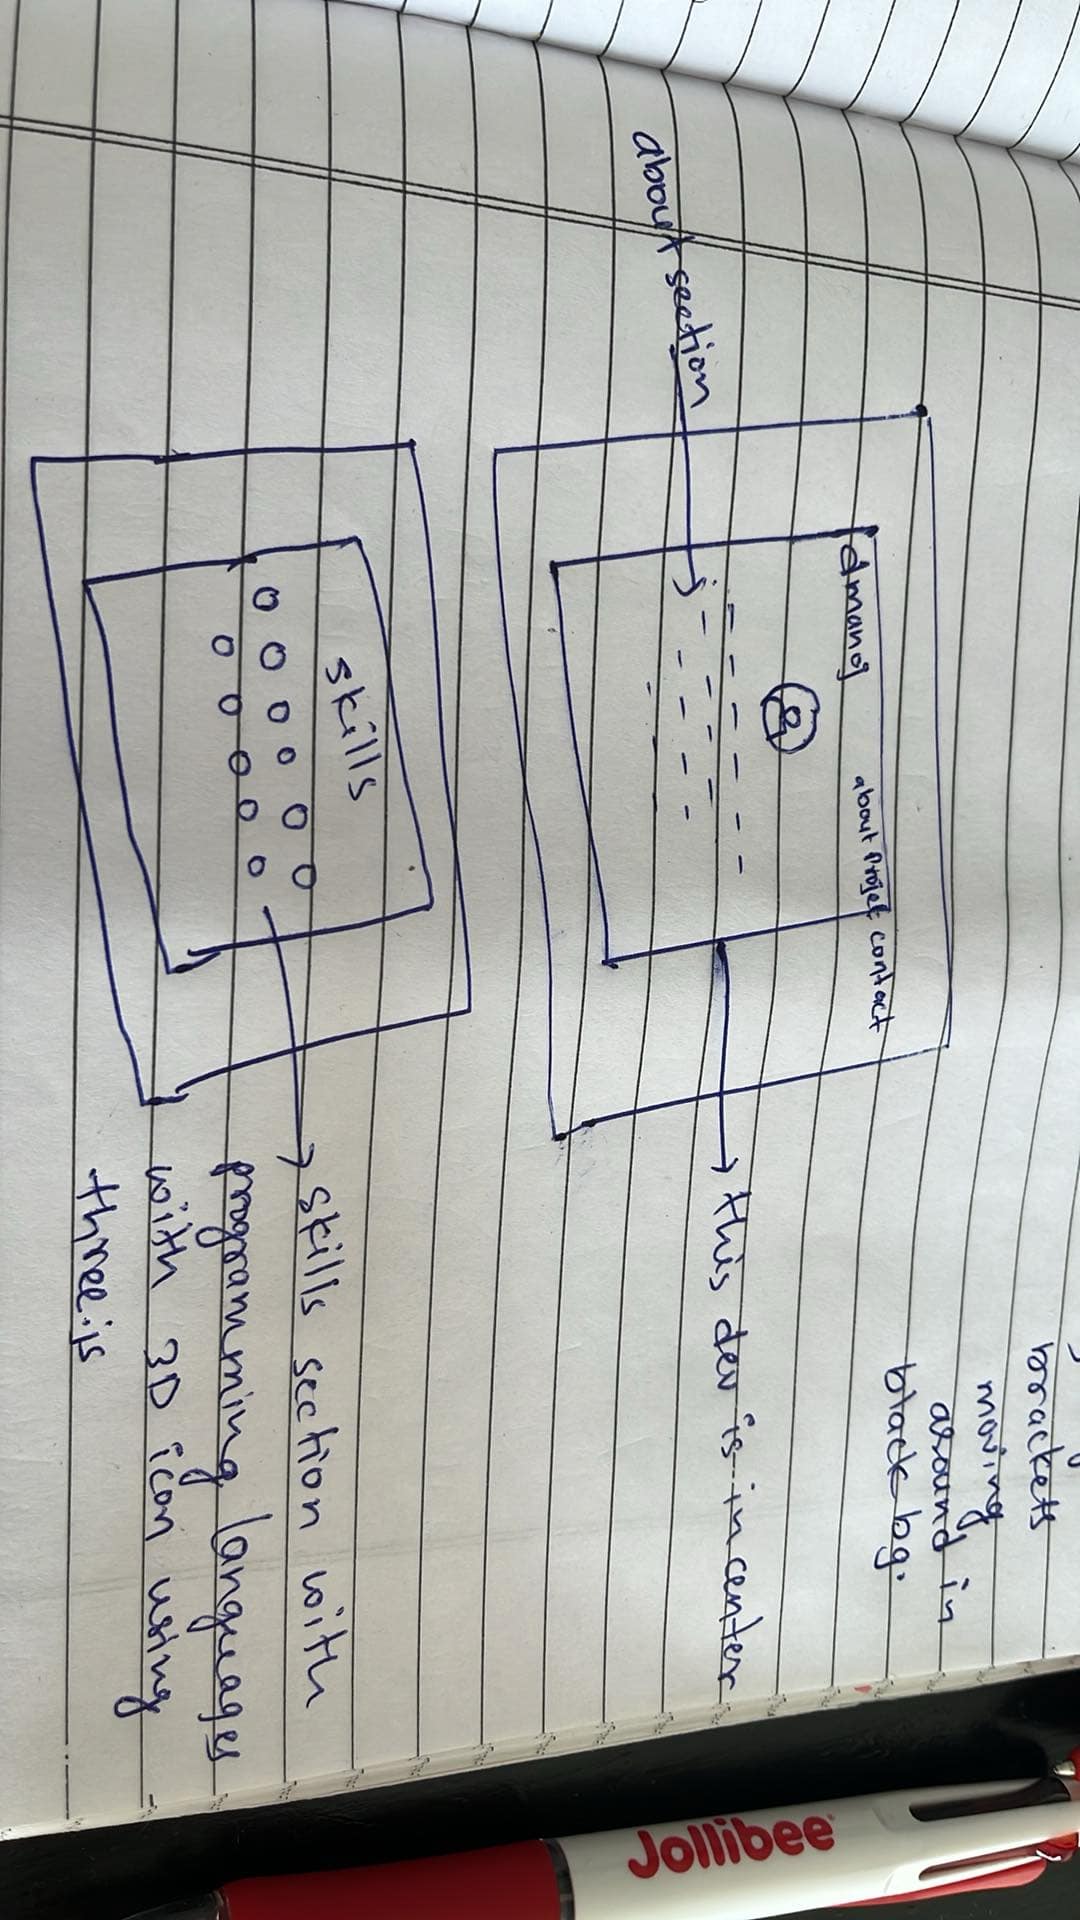 brackets
moving
around in
black bg.
dmanoj
about Projet contact
about section
this dev is in center
skills
skills section with
programming languages
with 3D icon using
three.js
Jollibee